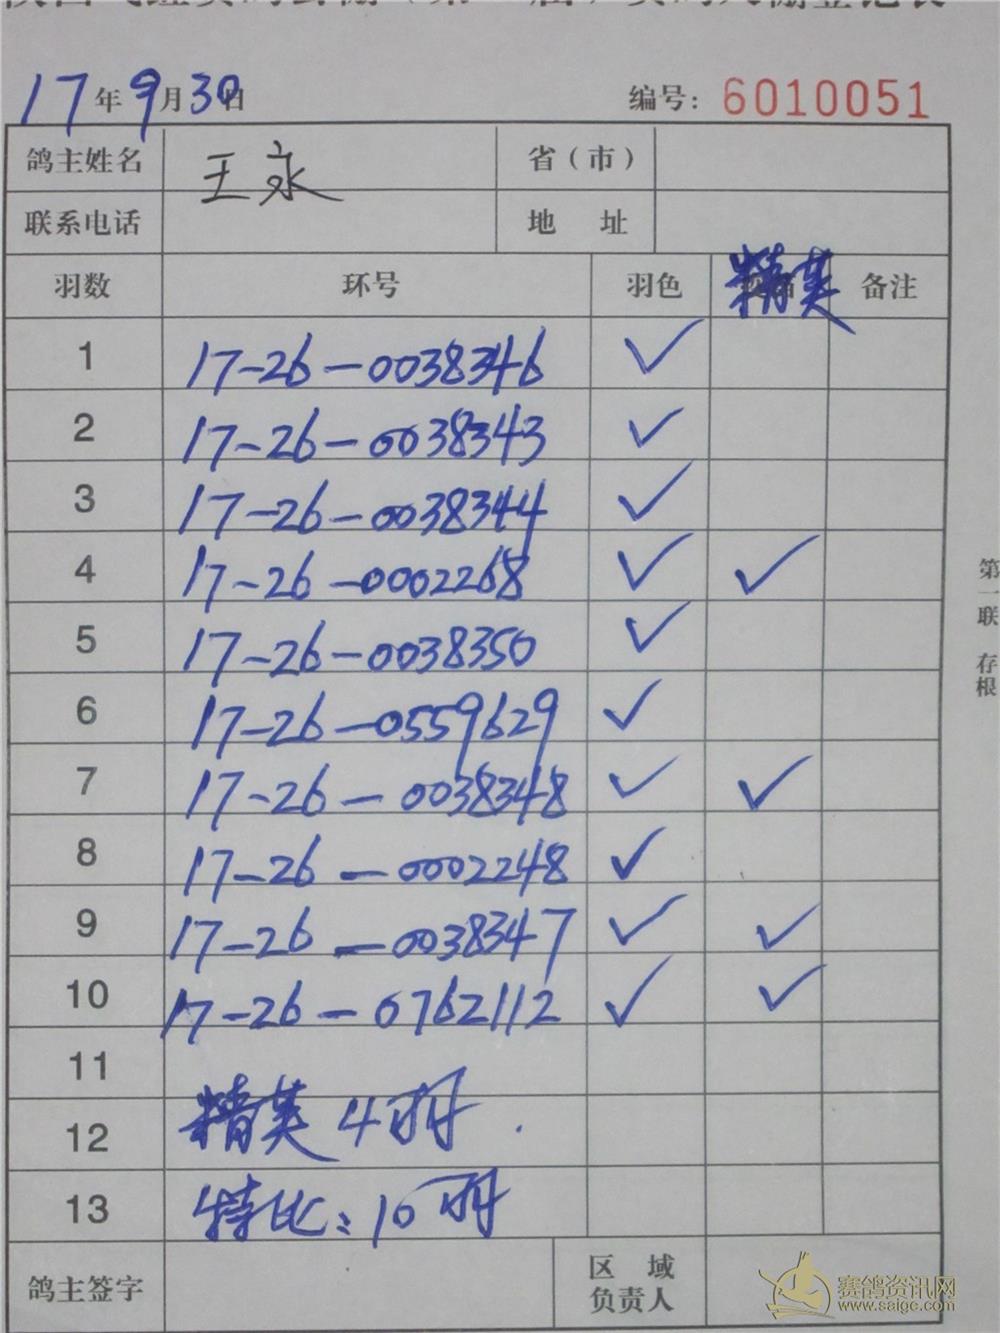 17年9月30日 编号: 6010051
鸽主姓名 王永 省(市)
联系电话 地 址
羽数 环号 羽色 精英 备注
1 17-26-0038346 ✓
2 17-26-0038343 ✓
3 17-26-0038344 ✓
4 17-26-0002268 ✓ ✓
5 17-26-0038350 ✓
6 17-26-0559629 ✓
7 17-26-0038348 ✓ ✓
8 17-26-0002248 ✓
9 17-26-0038347 ✓ ✓
10 17-26-0762112 ✓ ✓
11
12 精英4羽.
13 特比:10羽
鸽主签字 区 域
负责人
第一联 存根
赛鸽资讯网
www.saigc.com